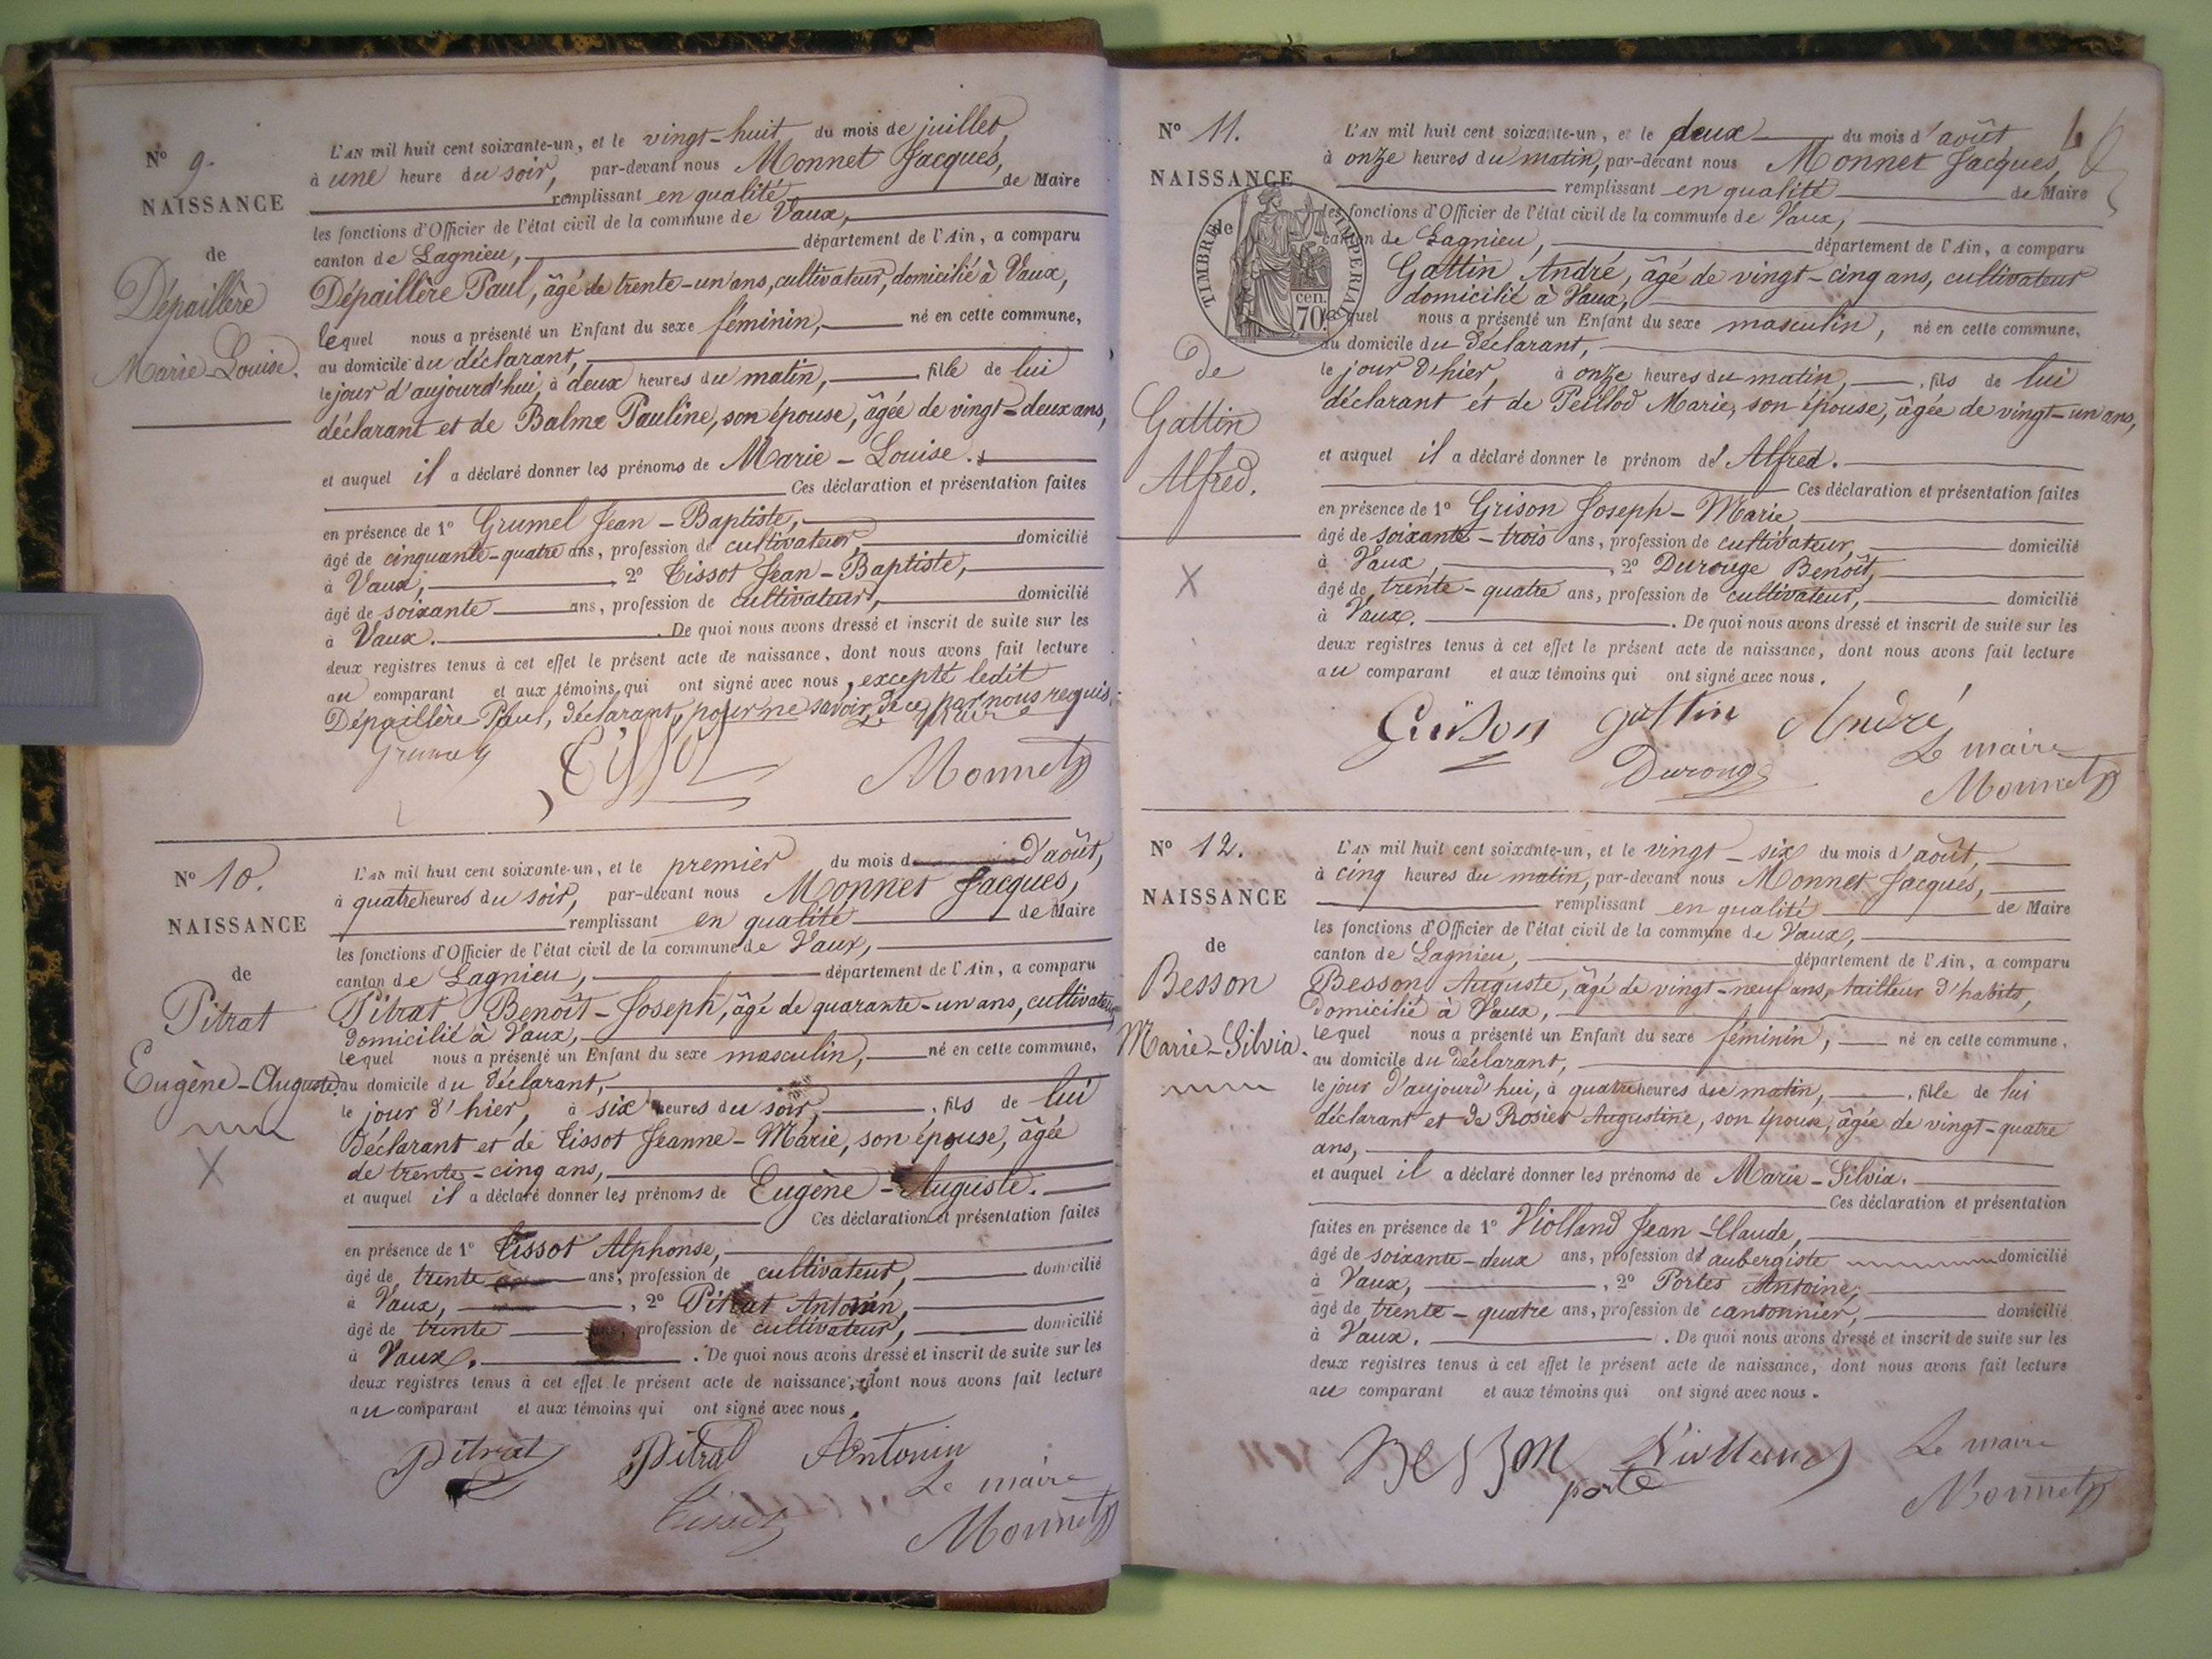 N° 9.
NAISSANCE
de
Dépaillère
Marie-Louise.
L'AN mil huit cent soixante-un, et le vingt-huit du mois de juillet,
à une heure du soir, par-devant nous Monnet Jacques,
remplissant en qualité de Maire
les fonctions d'Officier de l'état civil de la commune de Vaux,
canton de Lagnieu, département de l'Ain, a comparu
Dépaillère Paul, âgé de trente-un ans, cultivateur, domicilié à Vaux,
lequel nous a présenté un Enfant du sexe féminin, né en cette commune,
au domicile du déclarant,
le jour d'aujourd'hui, à deux heures du matin, fille de lui
déclarant et de Balme Pauline, son épouse, âgée de vingt-deux ans,
et auquel il a déclaré donner les prénoms de Marie-Louise.
Ces déclaration et présentation faites
en présence de 1° Grumel Jean-Baptiste,
âgé de cinquante-quatre ans, profession de cultivateur, domicilié
à Vaux, 2° Tissot Jean-Baptiste,
âgé de soixante ans, profession de cultivateur, domicilié
à Vaux. De quoi nous avons dressé et inscrit de suite sur les
deux registres tenus à cet effet le présent acte de naissance, dont nous avons fait lecture
au comparant et aux témoins qui ont signé avec nous, excepté ledit
Dépaillère Paul, déclarant, pour ne savoir, de ce par nous requis.
Le Maire
Grumel Tissot Monnet
N° 10.
NAISSANCE
de
Pitrat
Eugène-Auguste.
X
L'AN mil huit cent soixante-un, et le premier du mois d d'août,
à quatre heures du soir, par-devant nous Monnet Jacques,
remplissant en qualité de Maire
les fonctions d'Officier de l'état civil de la commune de Vaux,
canton de Lagnieu, département de l'Ain, a comparu
Pitrat Benoît-Joseph, âgé de quarante-un ans, cultivateur,
domicilié à Vaux,
lequel nous a présenté un Enfant du sexe masculin, né en cette commune,
au domicile du déclarant,
le jour d'hier, à six heures du soir, fils de lui
déclarant et de Tissot Jeanne-Marie, son épouse, âgée
de trente-cinq ans,
et auquel il a déclaré donner les prénoms de Eugène-Auguste.
Ces déclaration et présentation faites
en présence de 1° Tissot Alphonse,
âgé de trente ans, profession de cultivateur, domicilié
à Vaux, 2° Pitrat Antonin,
âgé de trente ans, profession de cultivateur, domicilié
à Vaux. De quoi nous avons dressé et inscrit de suite sur les
deux registres tenus à cet effet le présent acte de naissance, dont nous avons fait lecture
au comparant et aux témoins qui ont signé avec nous.
Pitrat Pitrat Antonin
Le maire
Tissot Monnet
N° 11.
NAISSANCE
de
TIMBRE IMPERIAL
70 cen.
de
Gattin
Alfred.
X
L'AN mil huit cent soixante-un, et le deux du mois d'août
à onze heures du matin, par-devant nous Monnet Jacques,
remplissant en qualité de Maire
les fonctions d'Officier de l'état civil de la commune de Vaux,
canton de Lagnieu, département de l'Ain, a comparu
Gattin André, âgé de vingt-cinq ans, cultivateur
domicilié à Vaux,
lequel nous a présenté un Enfant du sexe masculin, né en cette commune,
au domicile du déclarant,
le jour d'hier à onze heures du matin, fils de lui
déclarant et de Peillod Marie, son épouse, âgée de vingt-un ans,
et auquel il a déclaré donner le prénom de Alfred.
Ces déclaration et présentation faites
en présence de 1° Grison Joseph-Marie,
âgé de soixante-trois ans, profession de cultivateur, domicilié
à Vaux, 2° Durouge Benoît,
âgé de trente-quatre ans, profession de cultivateur, domicilié
à Vaux. De quoi nous avons dressé et inscrit de suite sur les
deux registres tenus à cet effet le présent acte de naissance, dont nous avons fait lecture
au comparant et aux témoins qui ont signé avec nous.
Grison Gattin André
Le maire
Durouge Monnet
N° 12.
NAISSANCE
de
Besson
Marie-Silvia.
L'AN mil huit cent soixante-un, et le vingt-six du mois d'août,
à cinq heures du matin, par-devant nous Monnet Jacques,
remplissant en qualité de Maire
les fonctions d'Officier de l'état civil de la commune de Vaux,
canton de Lagnieu, département de l'Ain, a comparu
Besson Auguste, âgé de vingt-neuf ans, tailleur d'habits,
domicilié à Vaux,
lequel nous a présenté un Enfant du sexe féminin, né en cette commune,
au domicile du déclarant,
le jour d'aujourd'hui, à quatre heures du matin, fille de lui
déclarant et de Rosier Augustine, son épouse, âgée de vingt-quatre
ans,
et auquel il a déclaré donner les prénoms de Marie-Silvia.
Ces déclaration et présentation
faites en présence de 1° Violland Jean-Claude,
âgé de soixante-deux ans, profession d'aubergiste domicilié
à Vaux, 2° Portes Antoine,
âgé de trente-quatre ans, profession de cantonnier, domicilié
à Vaux. De quoi nous avons dressé et inscrit de suite sur les
deux registres tenus à cet effet le présent acte de naissance, dont nous avons fait lecture
au comparant et aux témoins qui ont signé avec nous.
Besson Violland Le maire
porte Monnet